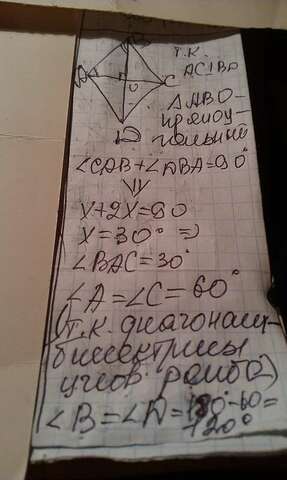 B
A
O
C
D
т.к.
AC⊥BD
△ABO-
прямоу-
гольный
∠CAB+∠ABA=90°
x+2x=90
x=30° ⇒
∠BAC=30°
∠A=∠C=60°
(т.к. диагонали-
биссектрисы
углов ромба)
∠B=∠D=180°-60=
120°